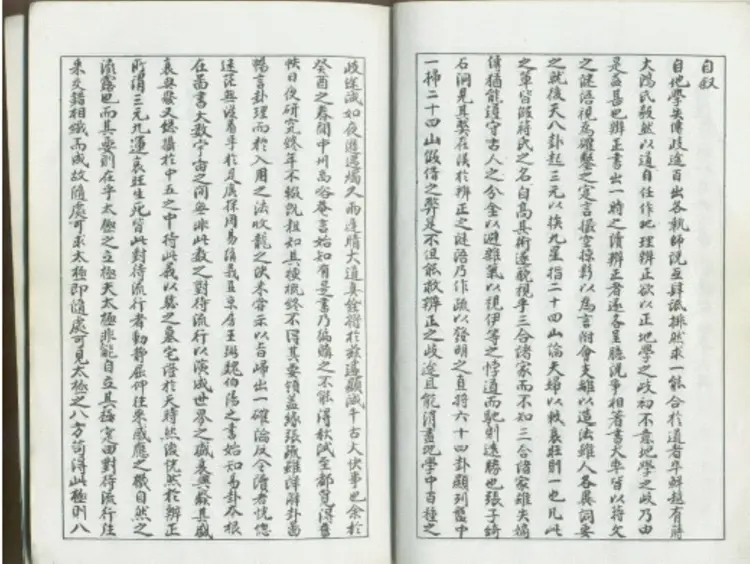 自叙
自地學失傳歧途百出各執師說互肆詆排然求一能合於道者卒鮮越有蔣
大鴻氏毅然以道自任作地理辨正欲以正地學之歧初不意地學之歧乃由
是益甚也辨正書出一時之讀辨正者逐各呈臆說爭相著書大率皆以蔣文
之謎語視為確鑿之定言攝空掠影以為言附會支離以造法雖人各異詞要
之就後天八卦起三元以挨九星指二十四山論天婦以較衰旺則一也凡此
之輩皆假蔣氏之名自高其術遂藐視乎三合諸家而不知三合諸家雖失嫡
傳猶能謹守古人之分金以避雜氣以視伊等之悖道而馳則遠勝也張子綺
石洞見其弊在誤於辨正之謎語乃作疏以發明之直將六十四卦顯列盤中
一掃二十四山假借之弊是不但能救辨正之歧途且能消盡地學中百種之
歧途誠如夜遊逢燭久雨逢晴大道真詮得於茲遂顯誠千古大快事也余於
癸酉之春聞中州高 菴言始知有是書乃偏購之不能得秋試至都習得舊
帙日夜研究終年不輟祇粗知其梗概終不得其要領蓋緣張疏雖詳解卦啚
暢言卦理而於入用之法收龍之訣未嘗示以旨歸出一確論反令讀者恍惚
迷茫無從着手於是廣採周易諸義及京房王弼魏伯陽之書始知易卦本根
在啚書大數宇宙之間無非此數之對待流行以演成世界之職衰興廢其盛
衰興廢又總攝於中五之中持此義以驗之墓宅證於天時然後恍然於辨正
所謂三元九運衰旺生死皆此對待流行者動靜屈伸往來感應之機自然之
流露也而其要則在乎太極之立極夫太極非能自立其極定由對待流行往
來交錯相織而成故隨處可求太極即隨處可見太極之八方苟得此極則八